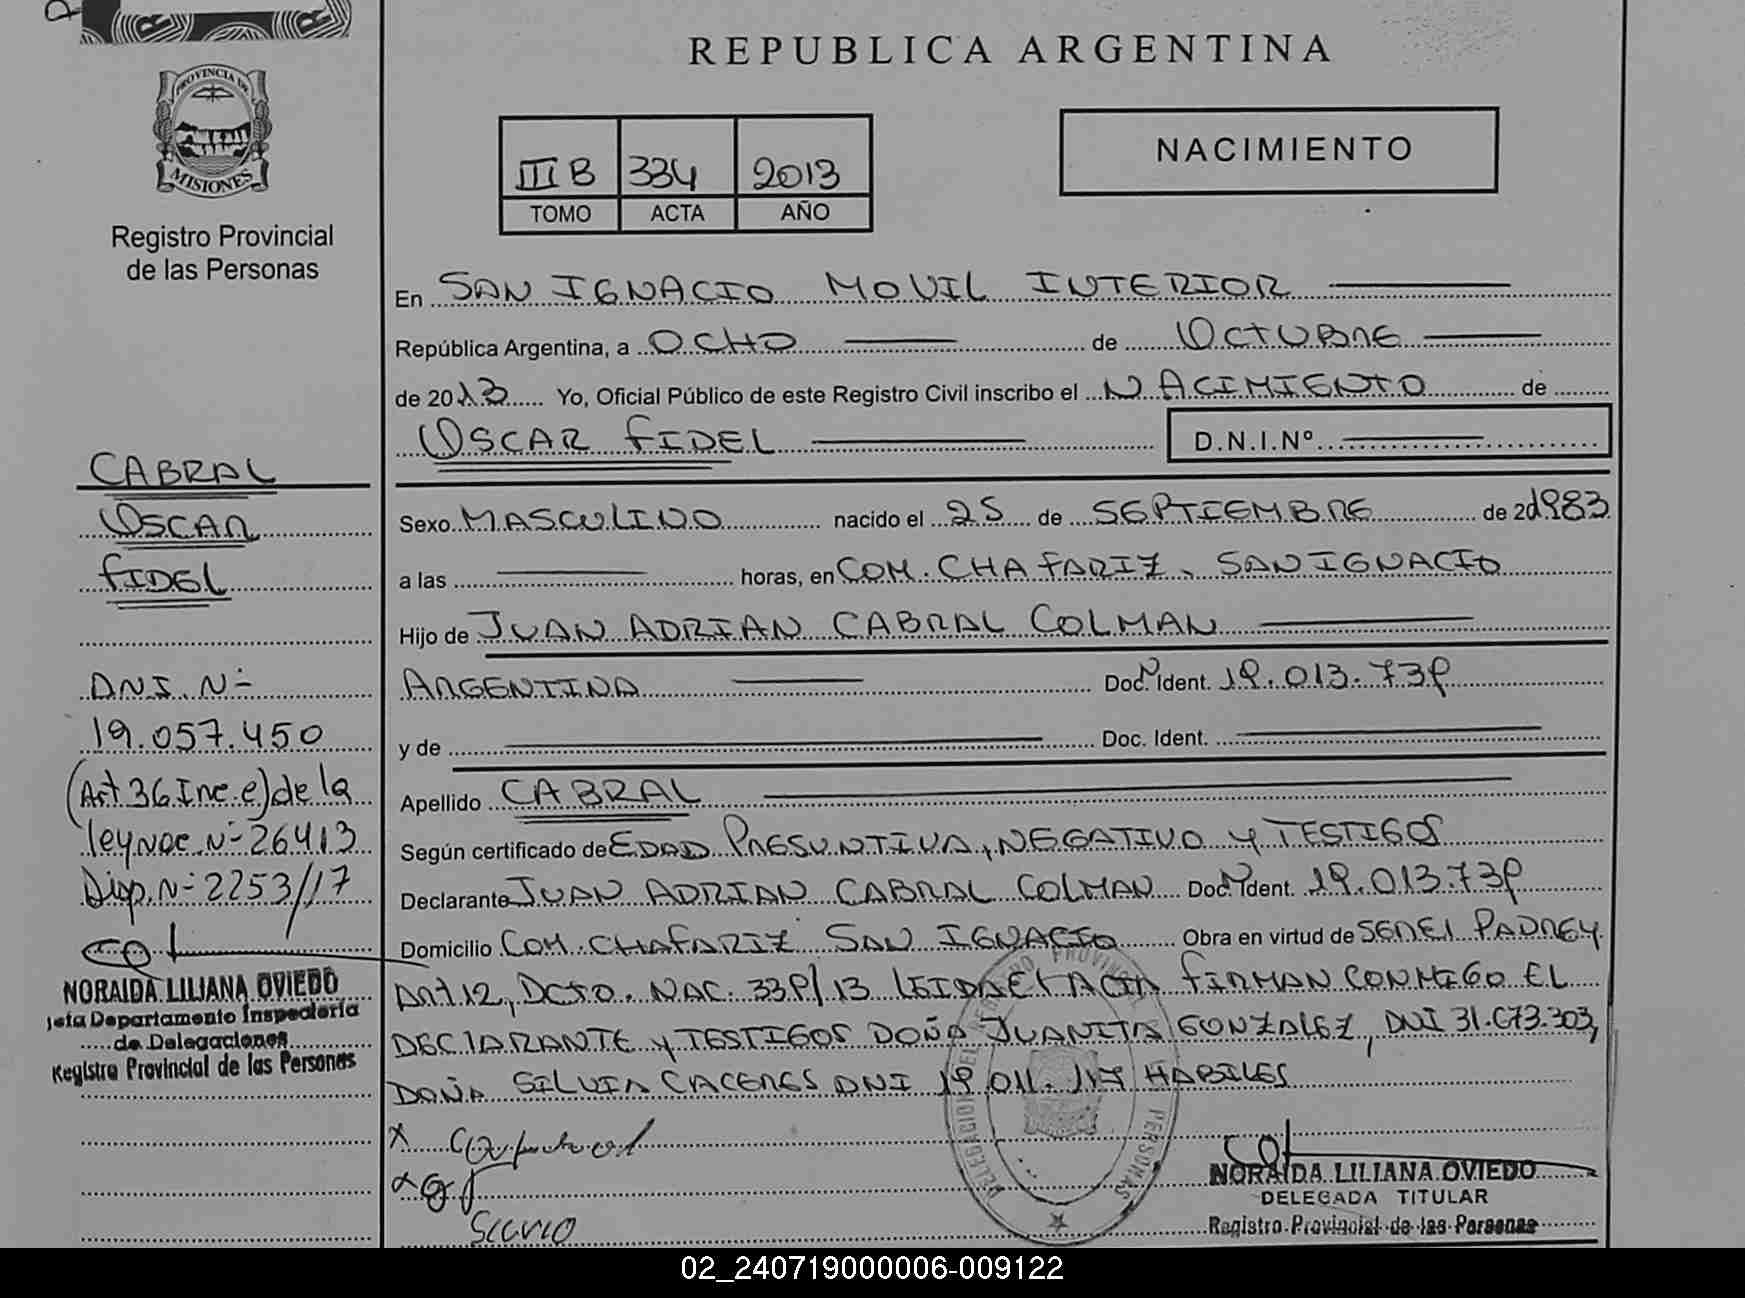 REPUBLICA ARGENTINA
PROVINCIA DE
MISIONES
Registro Provincial
de las Personas
III B 334 2013
TOMO ACTA AÑO
NACIMIENTO
En SAN IGNACIO MOVIL INTERIOR
República Argentina, a OCHO de OCTUBRE
de 2013 Yo, Oficial Público de este Registro Civil inscribo el NACIMIENTO de
OSCAR FIDEL D.N.I.Nº
Sexo MASCULINO nacido el 25 de SEPTIEMBRE de 201983
a las horas, en COM. CHAFARIZ, SAN IGNACIO
Hijo de JUAN ADRIAN CABRAL COLMAN
ARGENTINA Doc. Ident. 19.013.739
y de Doc. Ident.
Apellido CABRAL
Según certificado de EDAD PRESUNTIVA, NEGATIVO Y TESTIGOS
Declarante JUAN ADRIAN CABRAL COLMAN Doc. Ident. 19.013.739
Domicilio COM. CHAFARIZ SAN IGNACIO Obra en virtud de SER EL PADRE Y
ART 12, DCTO. NAC. 339/13 LEIDA EL ACTA FIRMAN CONMIGO EL
DECLARANTE Y TESTIGOS DOÑA JUANITA GONZALEZ, DNI 31.673.303,
DOÑA SILVIA CACERES DNI 19.011.117 HABILES
X
X
SILVIO
NORAIDA LILIANA OVIEDO
DELEGADA TITULAR
Registro Provincial de las Personas
CABRAL
OSCAR
FIDEL
DNI Nº
19.057.450
(Art 36 Inc. e) de la
ley nac. Nº 26413
Disp. Nº 2253/17
NORAIDA LILIANA OVIEDO
Jefa Departamento Inspectoría
de Delegaciones
Registro Provincial de las Personas
02_240719000006-009122